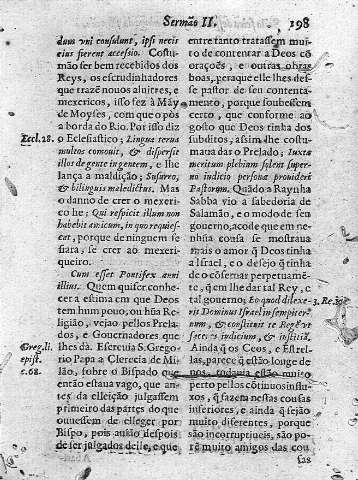 Sermão II. 198
dum vni consulunt, ipsi necis
eius fierent accessio. Costu-
mão ser bem recebidos dos
Reys, os escrudinhadores
que trazẽ nouos aluitres, e
mexericos, isso fez à Mãy
de Moyses, com que o pòs
a borda do Rio. Por isso diz
Eccl. 28. o Eclesiastico; Lingua tertia
multos comouit, & dispersit
illos de gente in gentem, e lhe
lança a maldição; Susurro,
& bilinguis maledictus. Mas
o danno de crer o mexeri-
co he; Qui respicit illum non
habebit amicum, in quo requies-
cat, porque de ninguem se
fiara, se crer ao mexeri-
queiro.
Cum esset Pontifex anni
illius. Quem quiser conhe-
cer a estima em que Deos
tem hum pouo, ou hũa Re-
ligião, vejao pellos Prela-
dos, e Gouernadores que
Greg. li. lhes dà. Escreuia S. Grego-
epist. rio Papa a Clerecia de Mi-
c. 68. lão, sobre o Bispado que
então estaua vago, que an-
tes da elleição julgassem
primeiro das partes do que
ouuessem de elleger por
Bispo, pois auião despois
de ser julgados delle, e que
entre tanto tratassem mui-
to de contentar a Deos cõ
orações, e outras obras
boas, peraque elle lhes des-
se pastor de seu contenta-
mento, porque soubessem
certo, que conforme ao
gosto que Deos tinha dos
subditos, assim lhe costu-
maua dar o Prelado; Iuxta
meritum plebium solent super-
no iudicio persona prouideri
Pastorum. Quãdo a Raynha
Sabba vio a sabedoria de
Salamão, e o modo de seu
gouerno, acode que em ne-
nhũa cousa se mostraua
mais o amor q̃ Deos tinha
a Israel, e o desejo q̃ tinha
de o cõseruar perpetuamẽ-
te, q̃ em lhe dar tal Rey, e
tal gouerno; Eo quod dilexe- 3. Re. 10
rit Dominus Israel in sempiter-
num, & constituit te Regẽ vt
faceres iudicium, & iustitiã.
Ainda q̃ os Ceos, e Estrel-
las, parece q̃ estão longe de
nos, todauia estão muito
perto pellos cõtinuos influ-
xos, q̃ fazem nestas cousas
inferiores, e ainda q̃ sejão
muito diferentes, porque
são incorruptiueis, são po-
rẽ muito amigas das cou
sas